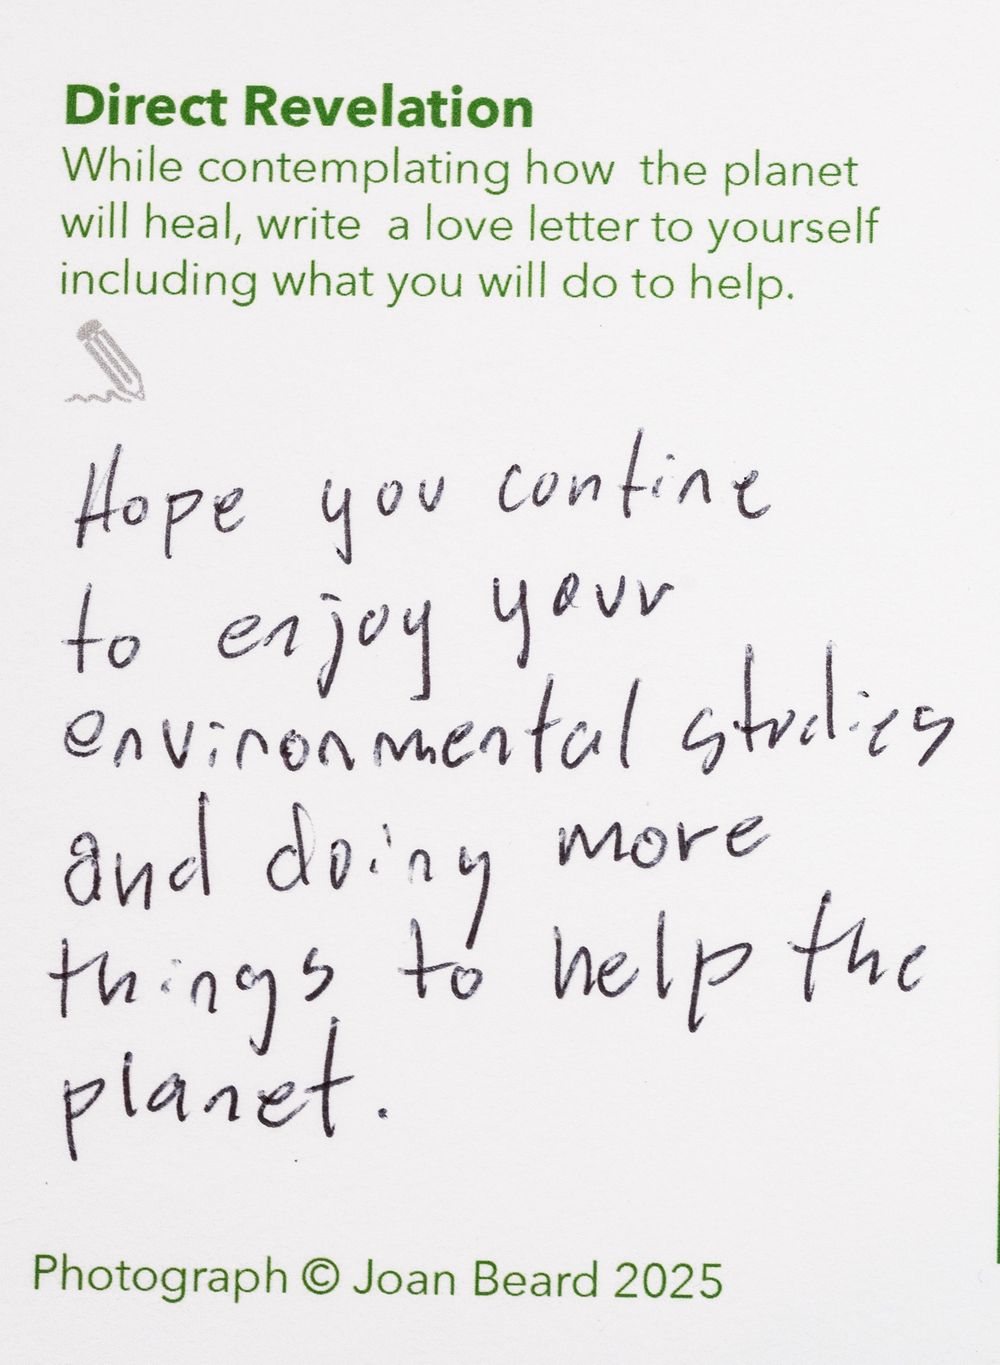 Direct Revelation
While contemplating how the planet
will heal, write a love letter to yourself
including what you will do to help.
Hope you contine
to enjoy your
environmental studies
and doing more
things to help the
planet.
Photograph © Joan Beard 2025